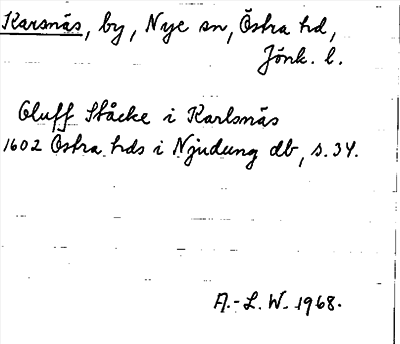 Karsnäs, by, Nye sn, Östra hd,
Jönk. l.
Oluff Ståcke i Karlsnäs
1602 Östra hds i Njudung db, s. 34.
A.-L. W. 1968.